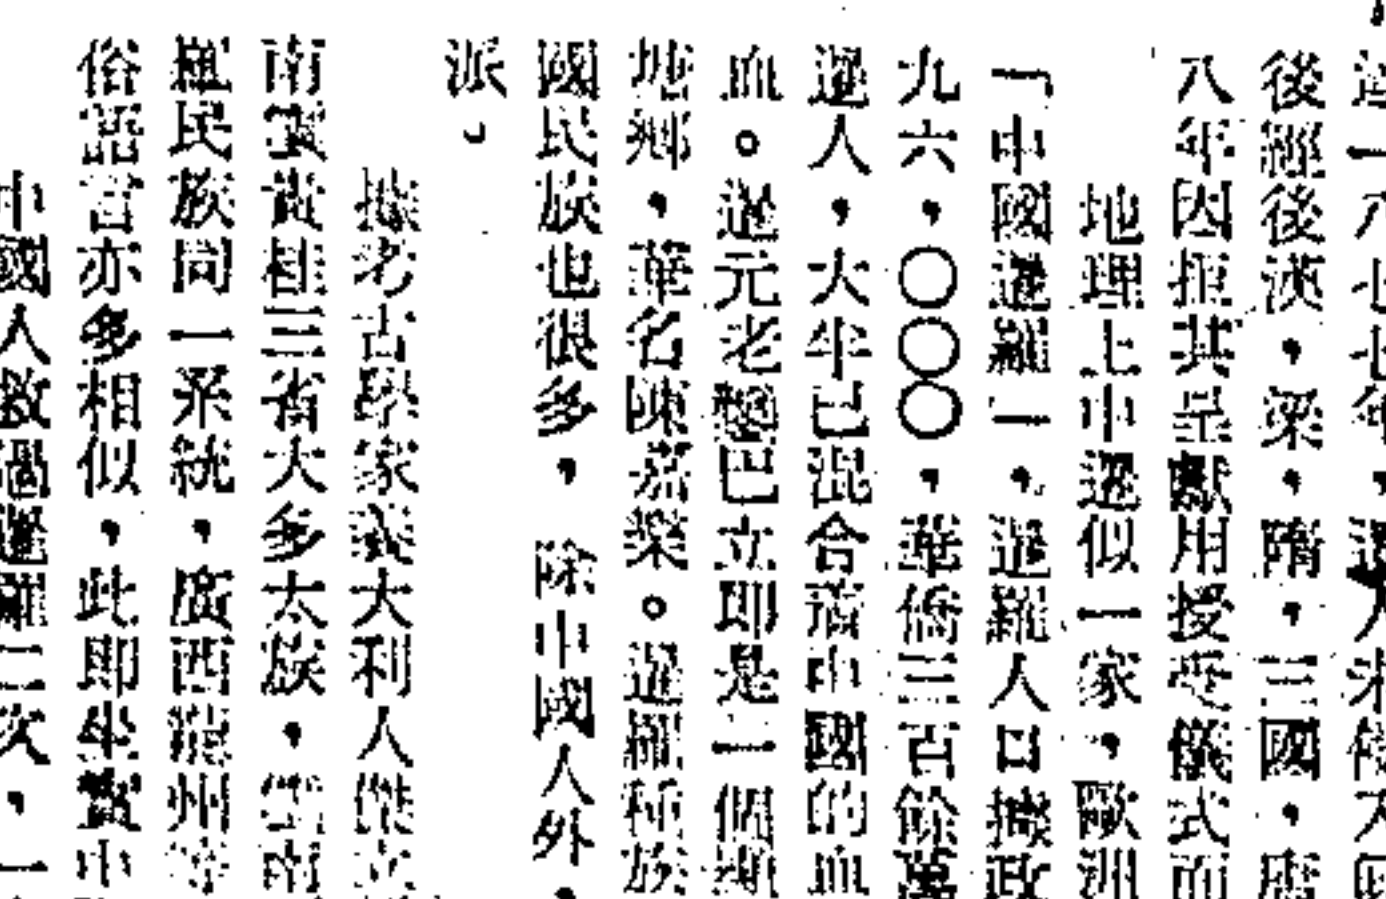 一八七七年，暹人未
後經後漢，梁，隋，三國，唐
八年因拒其呈獻用授受儀式而
地理上中暹似一家，歐洲
「中國暹羅」，暹羅人口據政
九六，〇〇〇，華僑三百餘萬
暹人，大半已混合着中國的血
血。暹元老鑾巴立即是一個
地鄉，華名陳嘉樂。暹羅種族
國民族也很多，除中國人外，
派。
據考古學家義大利人傑
南雲貴桂三省大多太族，雲南
暹民族同一系統，廣西龍州等
俗語言亦多相似，此即坐實中
中國人救過暹羅二次，一